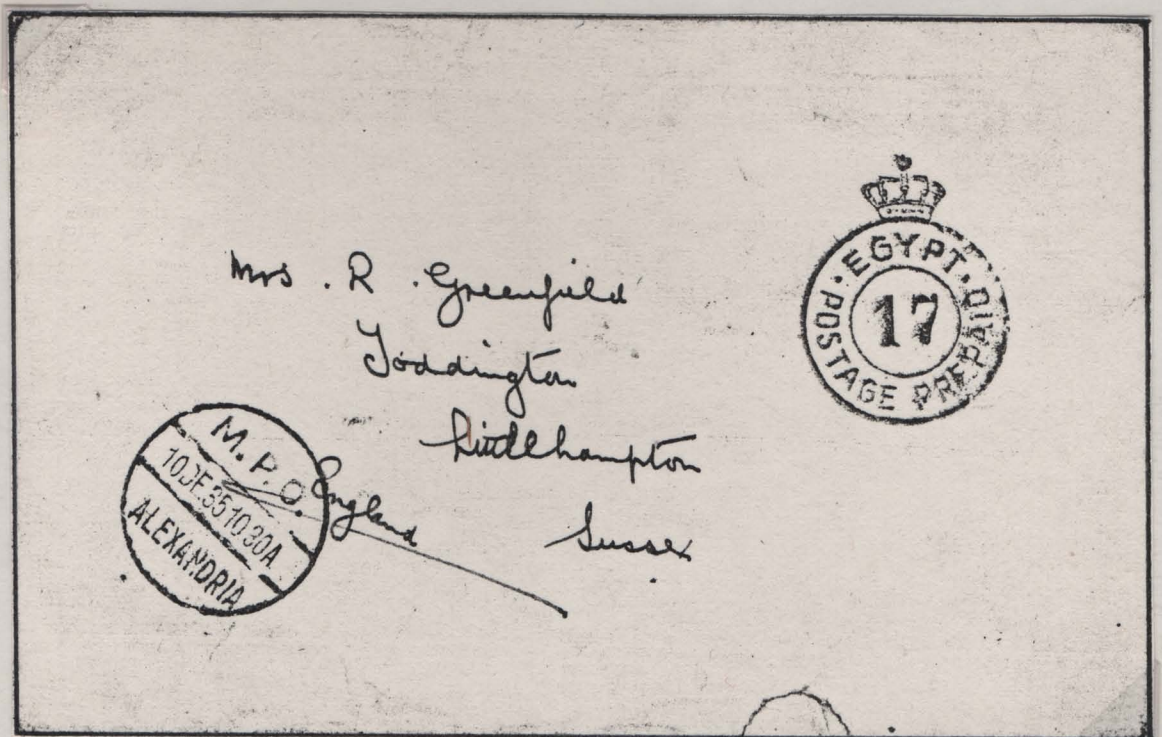 Mrs. R. Greenfield
Toddington
Littlehampton
Sussex
England
EGYPT
POSTAGE PREPAID
17
M. P. O.
10 DE 35 10 30 A
ALEXANDRIA